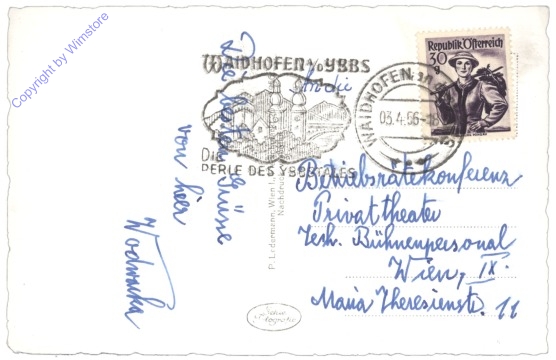 Copyright by Wimstore
WAIDHOFEN a/d YBBS
Die
PERLE DES YBBSTALES
WAIDHOFEN
03.4.56-18
Republik Österreich
30
g
An die
Betriebsrätekonferenz
Privattheater
Tech. Bühnenpersonal
Wien, IX.
Maria Theresienstr. 11
Die besten Grüsse
von hier
P. Ledermann, Wien I.,
Nachdruck